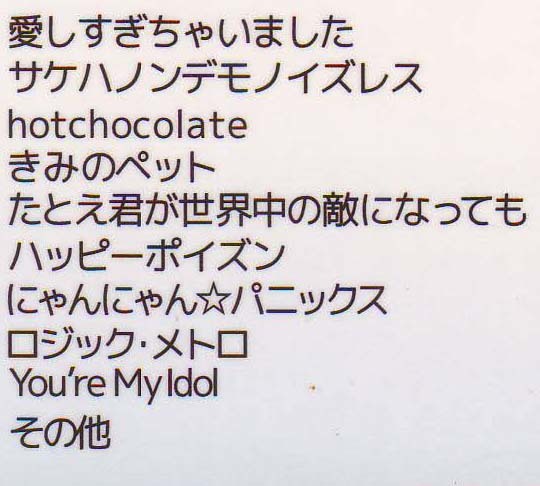 愛しすぎちゃいました
サケハノンデモノイズレス
hotchocolate
きみのペット
たとえ君が世界中の敵になっても
ハッピーポイズン
にゃんにゃん☆パニックス
□ジック・メト□
You're My Idol
その他